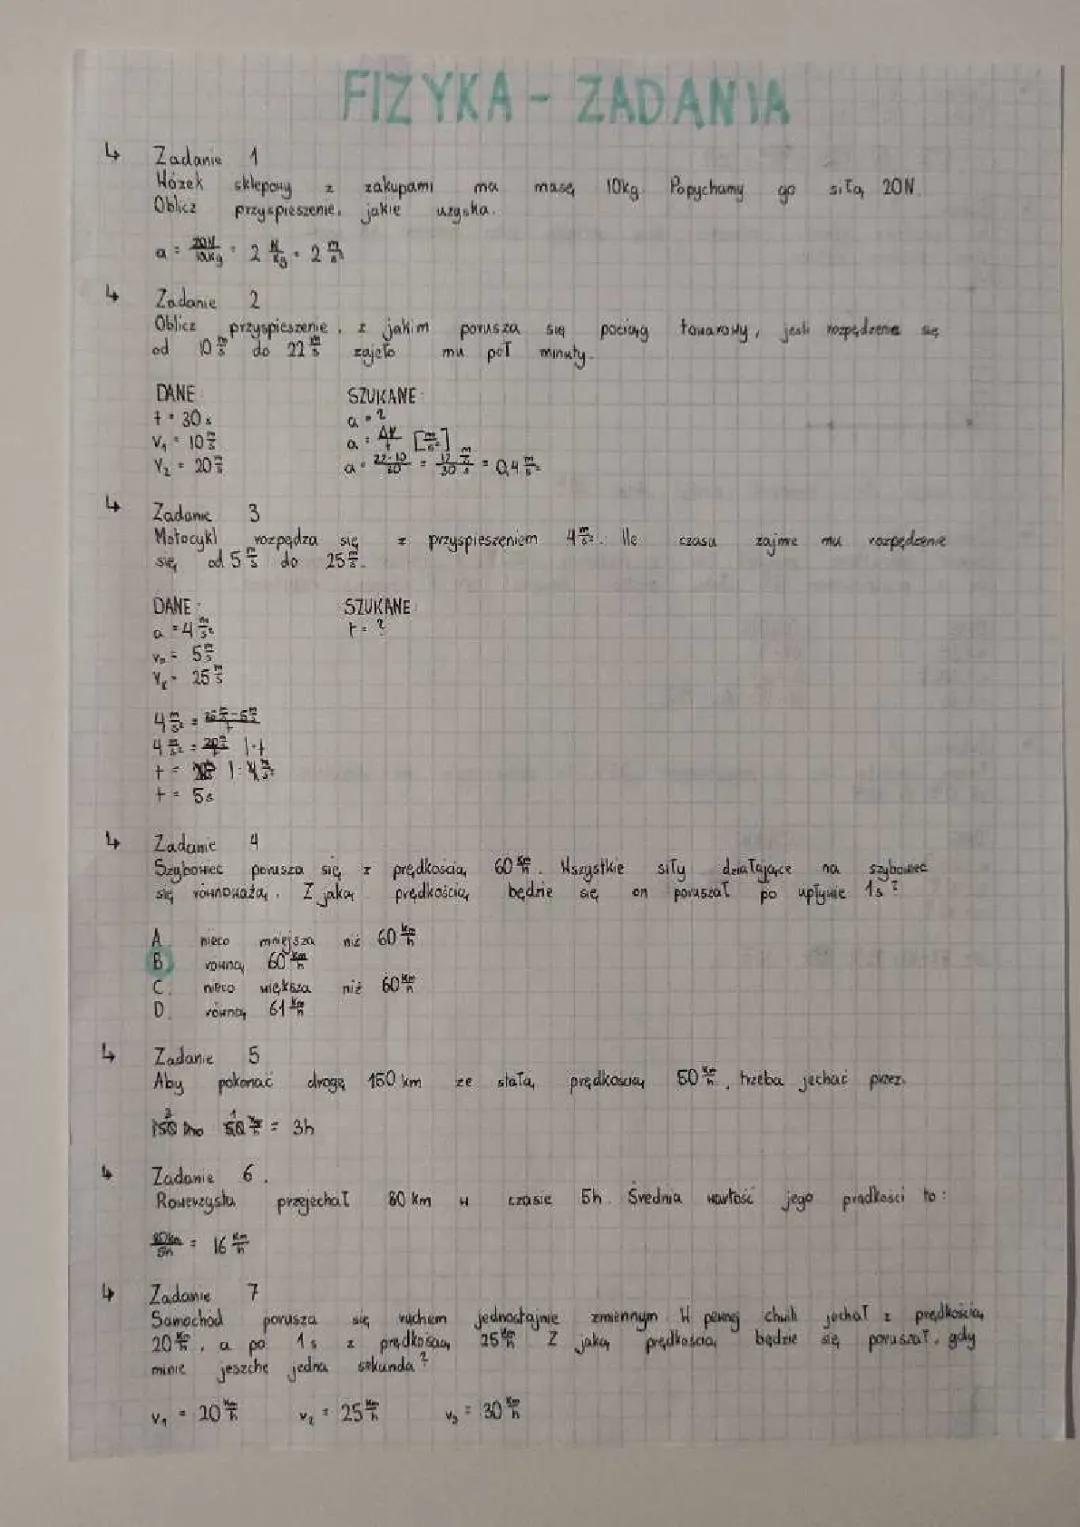 FIZYKA - ZADANIA
↳ Zadanie 1
Wózek sklepowy z zakupami ma masę 10kg. Popychamy go siłą 20N.
Oblicz przyspieszenie, jakie uzyska.
a = 20N/10kg = 2 N/kg = 2 m/s²
↳ Zadanie 2
Oblicz przyspieszenie, z jakim porusza się pociąg towarowy, jeśli rozpędzenie się
od 10 m/s do 22 m/s zajęło mu pół minuty.
DANE: SZUKANE:
t = 30s a = ?
V₁ = 10 m/s a = ΔV/t [m/s²]
V₂ = 20 m/s a = 22-10/30 = 12/30 m/s/s = 0,4 m/s²
↳ Zadanie 3
Motocykl rozpędza się z przyspieszeniem 4 m/s². Ile czasu zajmie mu rozpędzenie
się od 5 m/s do 25 m/s.
DANE: SZUKANE:
a = 4 m/s² t = ?
= 5 m/s
= 25 m/s
4 m/s² = 25 m/s - 5 m/s / t
4 m/s² = 20 m/s / t |·t
t = |: 4 m/s²
t = 5s
↳ Zadanie 4
Szybowiec porusza się z prędkością 60 km/h. Wszystkie siły działające na szybowiec
się równoważą. Z jaką prędkością będzie się on poruszał po upływie 1s?
A. nieco mniejsza niż 60 km/h
B. równą 60 km/h
C. nieco większa niż 60 km/h
D. równą 61 km/h
↳ Zadanie 5
Aby pokonać drogę 150 km ze stałą prędkością 50 km/h, trzeba jechać przez:
= 3h
↳ Zadanie 6.
Rowerzysta przejechał 80 km w czasie 5h. Średnia wartość jego prądkości to:
80km/5h = 16 km/h
↳ Zadanie 7
Samochód porusza się ruchem jednostajnie zmiennym. W pewnej chwili jechał z prędkością
20 km/h, a po 1s z prędkością 25 km/h. Z jaką prędkością będzie się poruszał, gdy
minie jeszcze jedna sekunda?
v₁ = 20 km/h v₂ = 25 km/h v₃ = 30 km/h